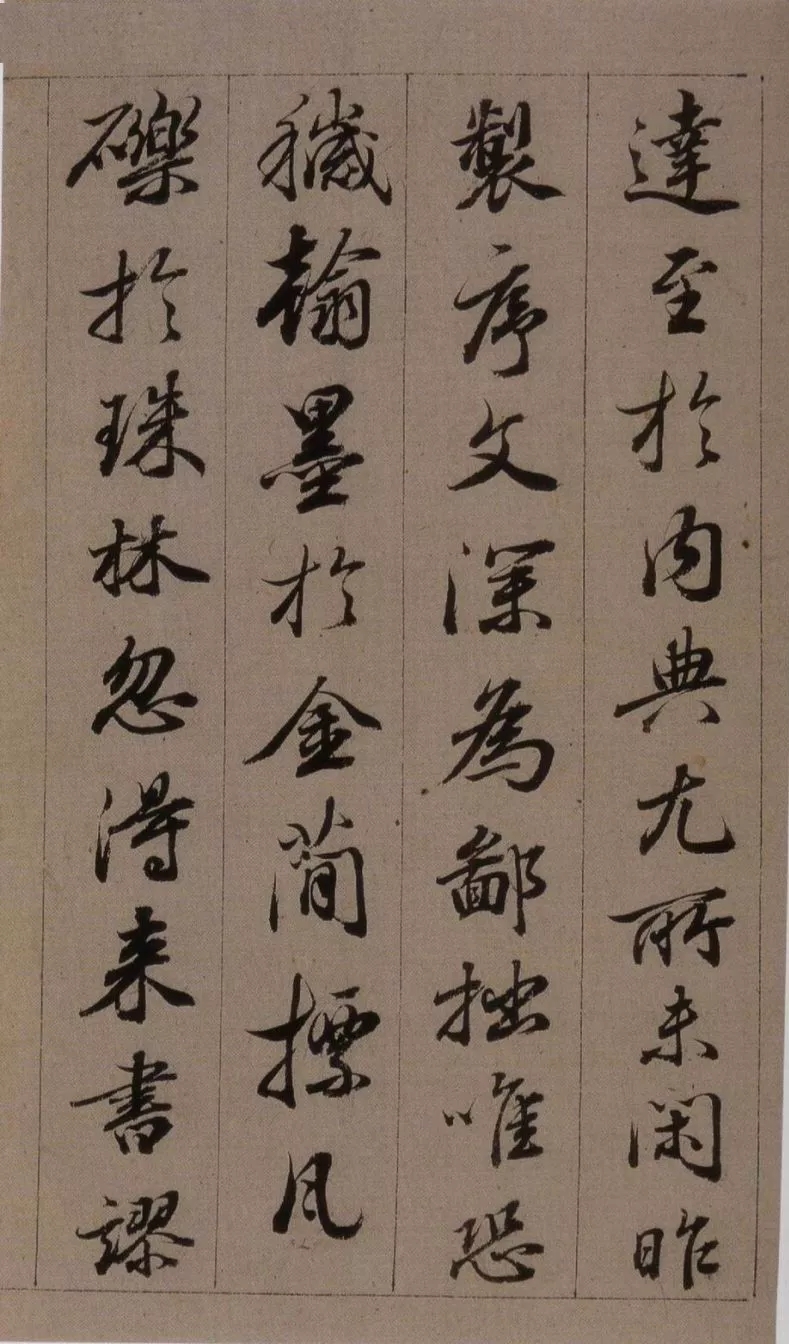 達至於内典尤所未閑昨
製序文深為鄙拙唯恐
穢翰墨於金簡標瓦
礫於珠林忽得来書謬